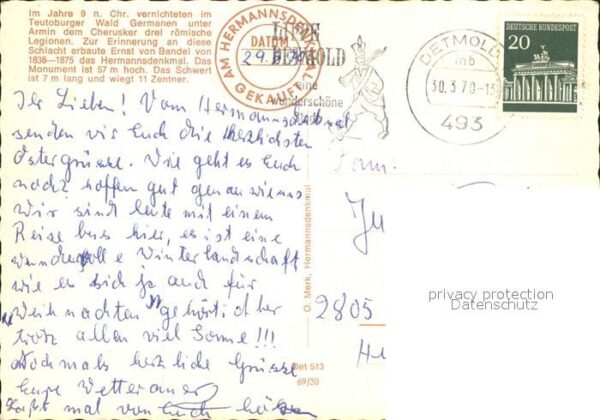 Im Jahre 9 n. Chr. vernichteten im
Teutoburger Wald Germanen unter
Armin dem Cherusker drei römische
Legionen. Zur Erinnerung an diese
Schlacht erbaute Ernst von Bandel von
1838—1875 das Hermannsdenkmal. Das
Monument ist 57 m hoch. Das Schwert
ist 7 m lang und wiegt 11 Zentner.
AM HERMANNSDENKMAL
DATUM
GEKAUFT
DETMOLD
eine
wunderschöne
DETMOLD
mb
30.3.70-13
493
DEUTSCHE BUNDESPOST
20
Ihr Lieben! Vom Hermannsdenkmal
senden wir Euch die herzlichsten
Ostergrüsse. Wie geht es Euch
noch? hoffen gut genau wie uns
Wir sind heute mit einem
Reise bus hier, es ist eine
wundervolle Winterlandschaft
wie es sich ja auch für
Weihnachten gehört. aber
trotz allem viel Sonne!!!
Nochmals herzliche Grüsse
Eure
Laßt mal von Euch hören
Fam.
2805
O. Merk, Hermannsdenkmal
Det 513
69/30
privacy protection
Datenschutz